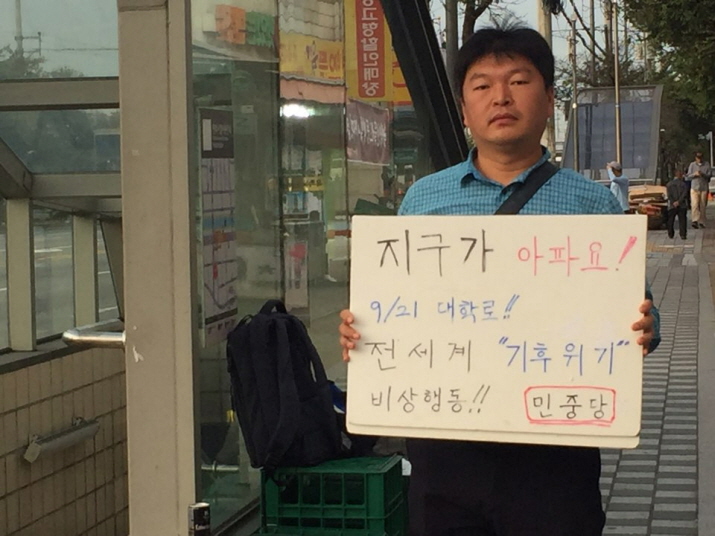 지구가 아파요!
9/21 대학로!!
전세계 "기후위기"
비상행동!!
민중당